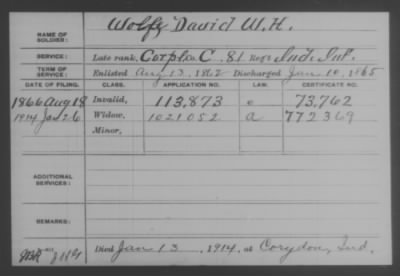 NAME OF SOLDIER: Wolfe David W. H.
SERVICE: Late rank, Corpl. Co. C, 81 Reg't Ind. Inf.
TERM OF SERVICE: Enlisted Aug 13, 1862 Discharged Jan 10, 1865
DATE OF FILING. CLASS. APPLICATION NO. LAW. CERTIFICATE NO.
1866 Aug 18 Invalid, 113,873 73,762
1914 Jan 26 Widow, 1021052 a 772369
Minor,
ADDITIONAL SERVICES:
REMARKS:
Died Jan 13, 1914, at Corydon, Ind.